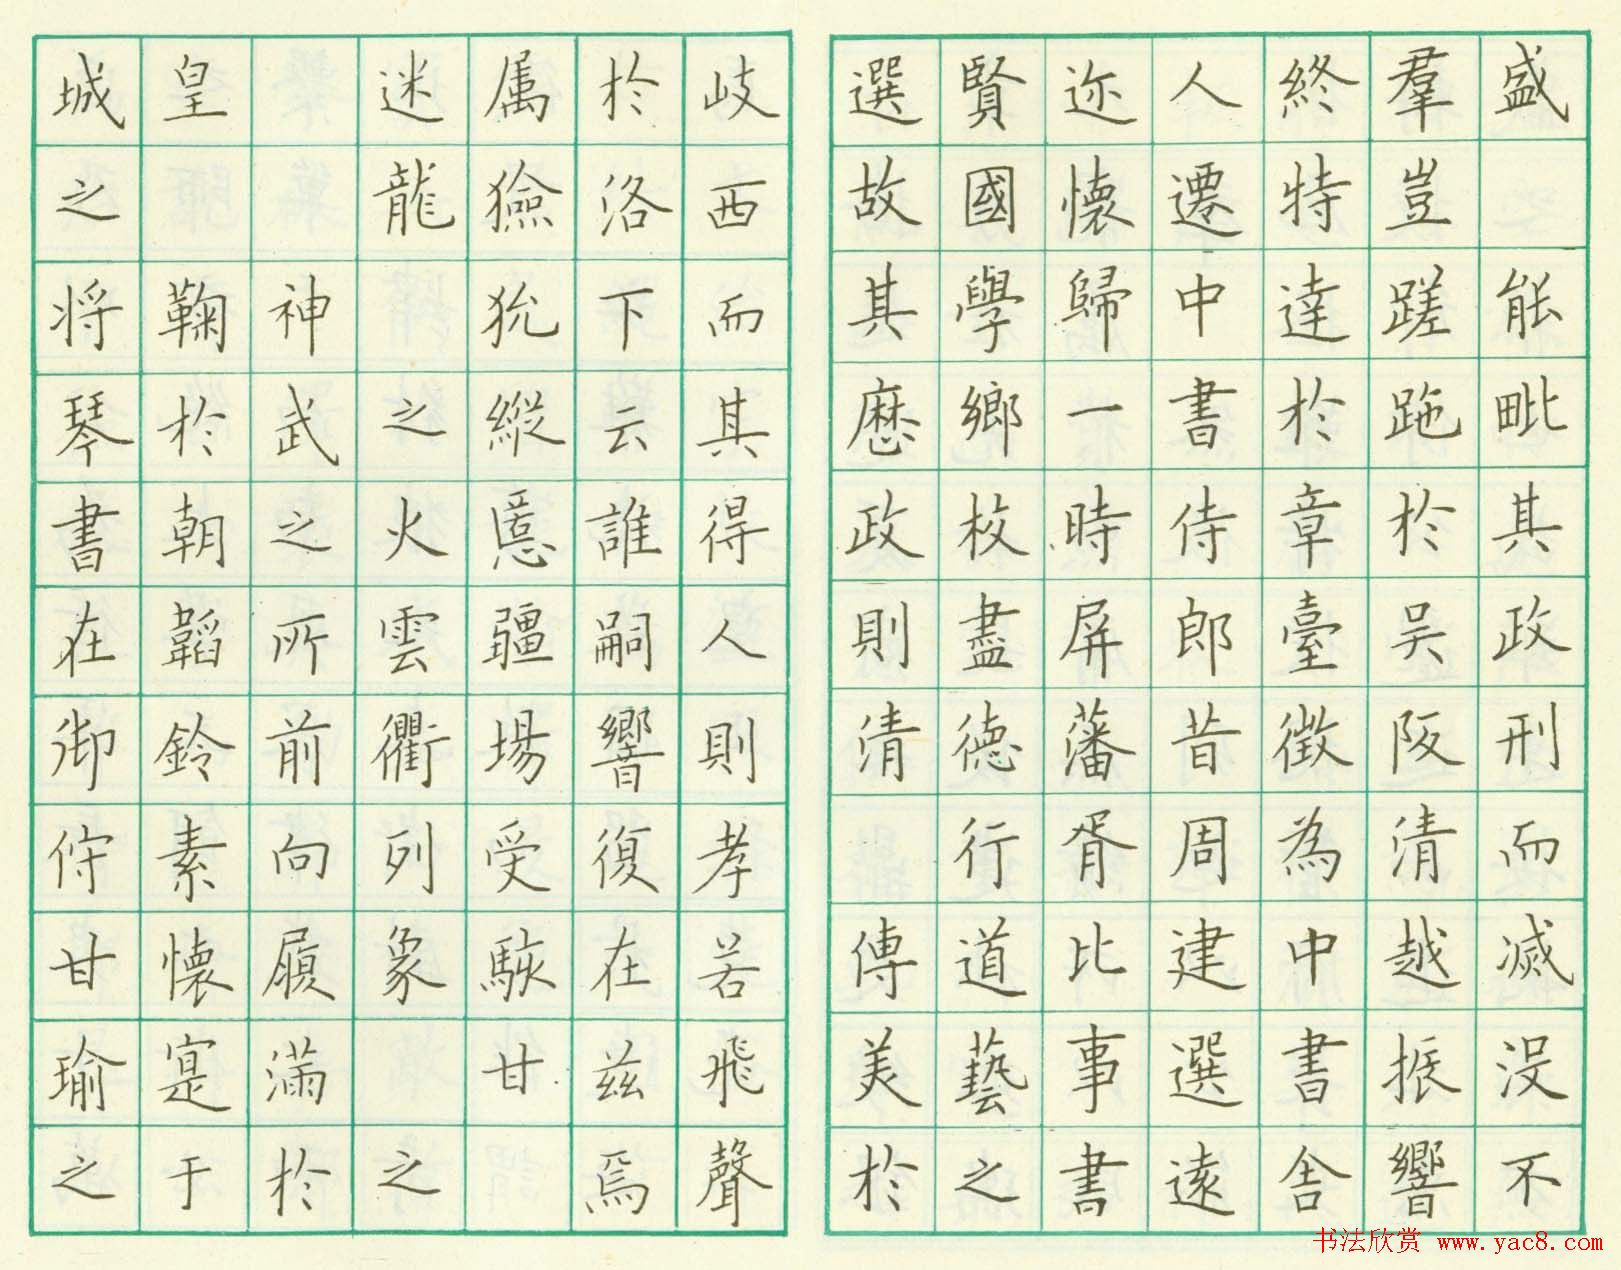 盛能毗其政刑而滅没不
羣豈蹉跎於吴阪清越振響
終特達於章臺徵為中書舍
人遷中書侍郎昔周建選遠
迩懷歸一時屏藩胥比事書
賢國學鄉枚盡德行道藝之
選故其歷政則清傳美於
岐西而其得人則孝若飛聲
於洛下云誰嗣響復在兹焉
属獫狁縱慝疆場受駭甘
迷龍之火雲衢列象之
神武之所前向履滿於
皇鞠於朝韜鈴素懷寔于
城之将琴書在御佇甘瑜之
书法欣赏 www.yac8.com